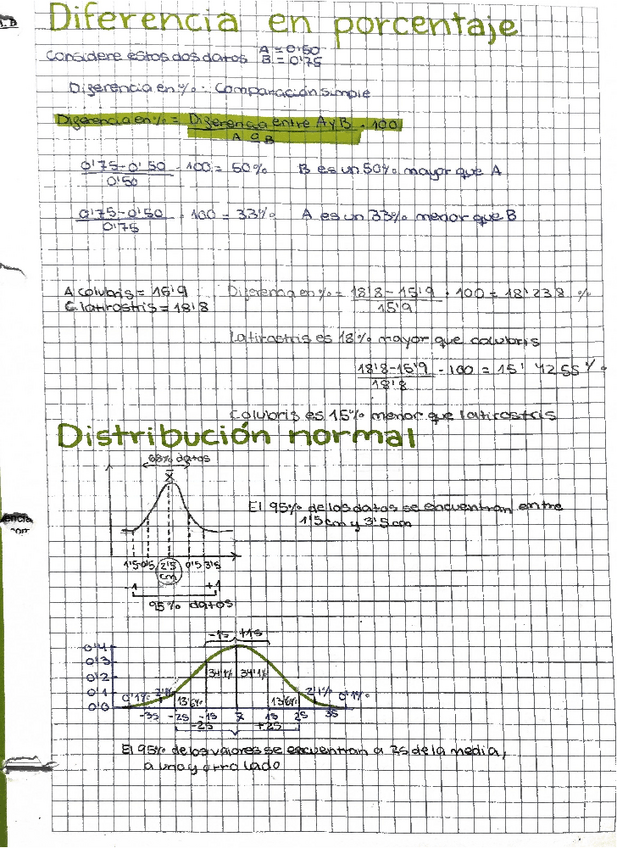 Diferencia en porcentaje
Considere estos dos datos A = 0'50
B = 0'75
Diferencia en %: Comparación simple
Diferencia en % = Diferencia entre A y B · 100
A o B
0'75-0'50 · 100 = 50% B es un 50% mayor que A
0'50
0'75-0'50 · 100 = 33% A es un 33% menor que B
0'75
A colubris = 15'9 Diferencia en % = 18'8 - 15'9 · 100 = 18'238 %
C latirostris = 18'8 15'9
Latirostris es 18% mayor que colubris
18'8-15'9 · 100 = 15'4255%
18'8
Colubris es 15% menor que latirostris
Distribución normal
68% datos
x̄
El 95% de los datos se encuentran entre
1'5cm y 3'5cm
1'5 0'5 2'5 0'5 3'5
cm
-1 +1
95% datos
-1S +1S
0'4
0'3
0'2 34'1% 34'1%
0'1 0'1% 2'1% 13'6% 13'6% 2'1% 0'1%
0'0
-3S -2S -1S x̄ 1S 2S 3S
-2S +2S
El 95% de los valores se encuentran a 2s de la media,
a uno y otro lado